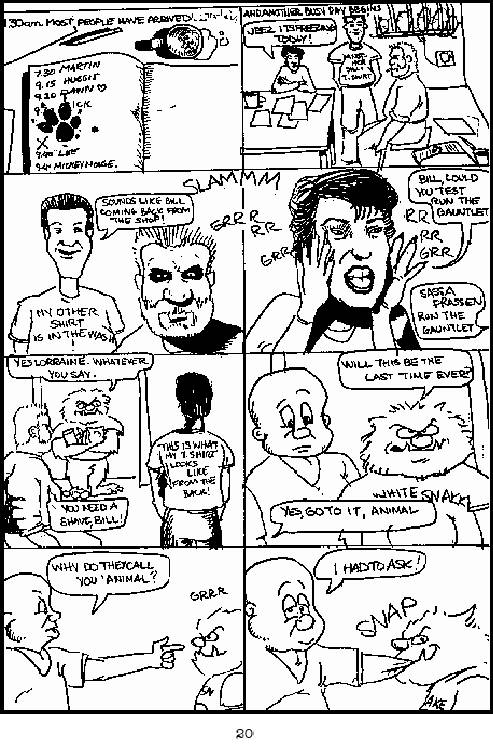 9.30am. MOST PEOPLE HAVE ARRIVED...
7.30 MARTIN
9.15 HUGGIE
9.20 DAWN
ICK
X
9.40 LEE
9.41 MICKEY MOUSE.
AND ANOTHER BUSY DAY BEGINS
IT'S FREEZING
TODAY!
T-SHIRT
SLAMMM
SOUNDS LIKE BILL
COMING BACK FROM
THE SHOP!
MY OTHER
SHIRT
IS IN THE WASH
GRRR
RR
GRR
BILL, COULD
YOU TEST
RUN THE
GAUNTLET
RR
RR
GRR
RUN THE
GAUNTLET
YES LORRAINE. WHATEVER
YOU SAY.
YOU NEED A
SHAVE, BILL!
THIS IS WHAT
MY T. SHIRT
LOOKS
LIKE
FROM THE
BACK!
WILL THIS BE THE
LAST TIME EVER?
WHITE SNAKE
YES, GO TO IT, ANIMAL
WHY DO THEY CALL
YOU 'ANIMAL'?
GRRR
SN
I HAD TO ASK!
SNAP
AKE
20